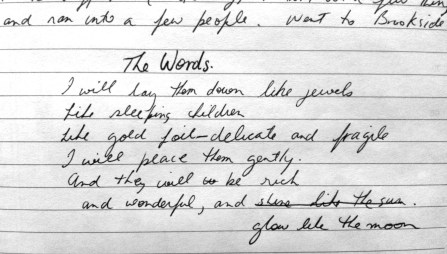 and ran into a few people. Went to Brookside
The Words.
I will lay them down like jewels
Like sleeping children
Like gold foil-delicate and fragile
I will place them gently.
And they will be rich
and wonderful, and shine like the sun.
glow like the moon